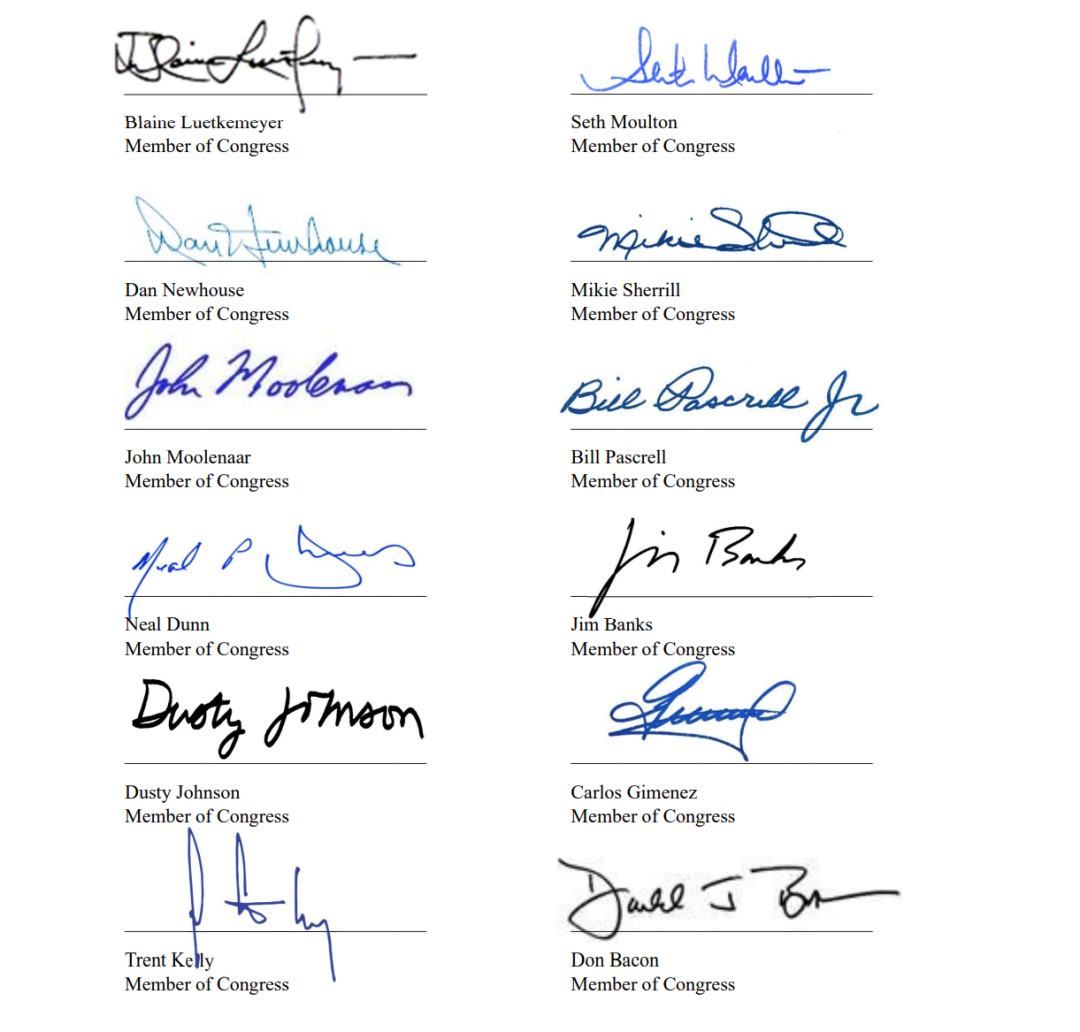 Blaine Luetkemeyer
Member of Congress
Seth Moulton
Member of Congress
Dan Newhouse
Dan Newhouse
Member of Congress
Mikie Sherrill
Mikie Sherrill
Member of Congress
John Moolenaar
John Moolenaar
Member of Congress
Bill Pascrell Jr
Bill Pascrell
Member of Congress
Neal P
Neal Dunn
Member of Congress
Jim Banks
Jim Banks
Member of Congress
Dusty Johnson
Dusty Johnson
Member of Congress
Carlos Gimenez
Member of Congress
Trent Kelly
Member of Congress
Don Bacon
Member of Congress